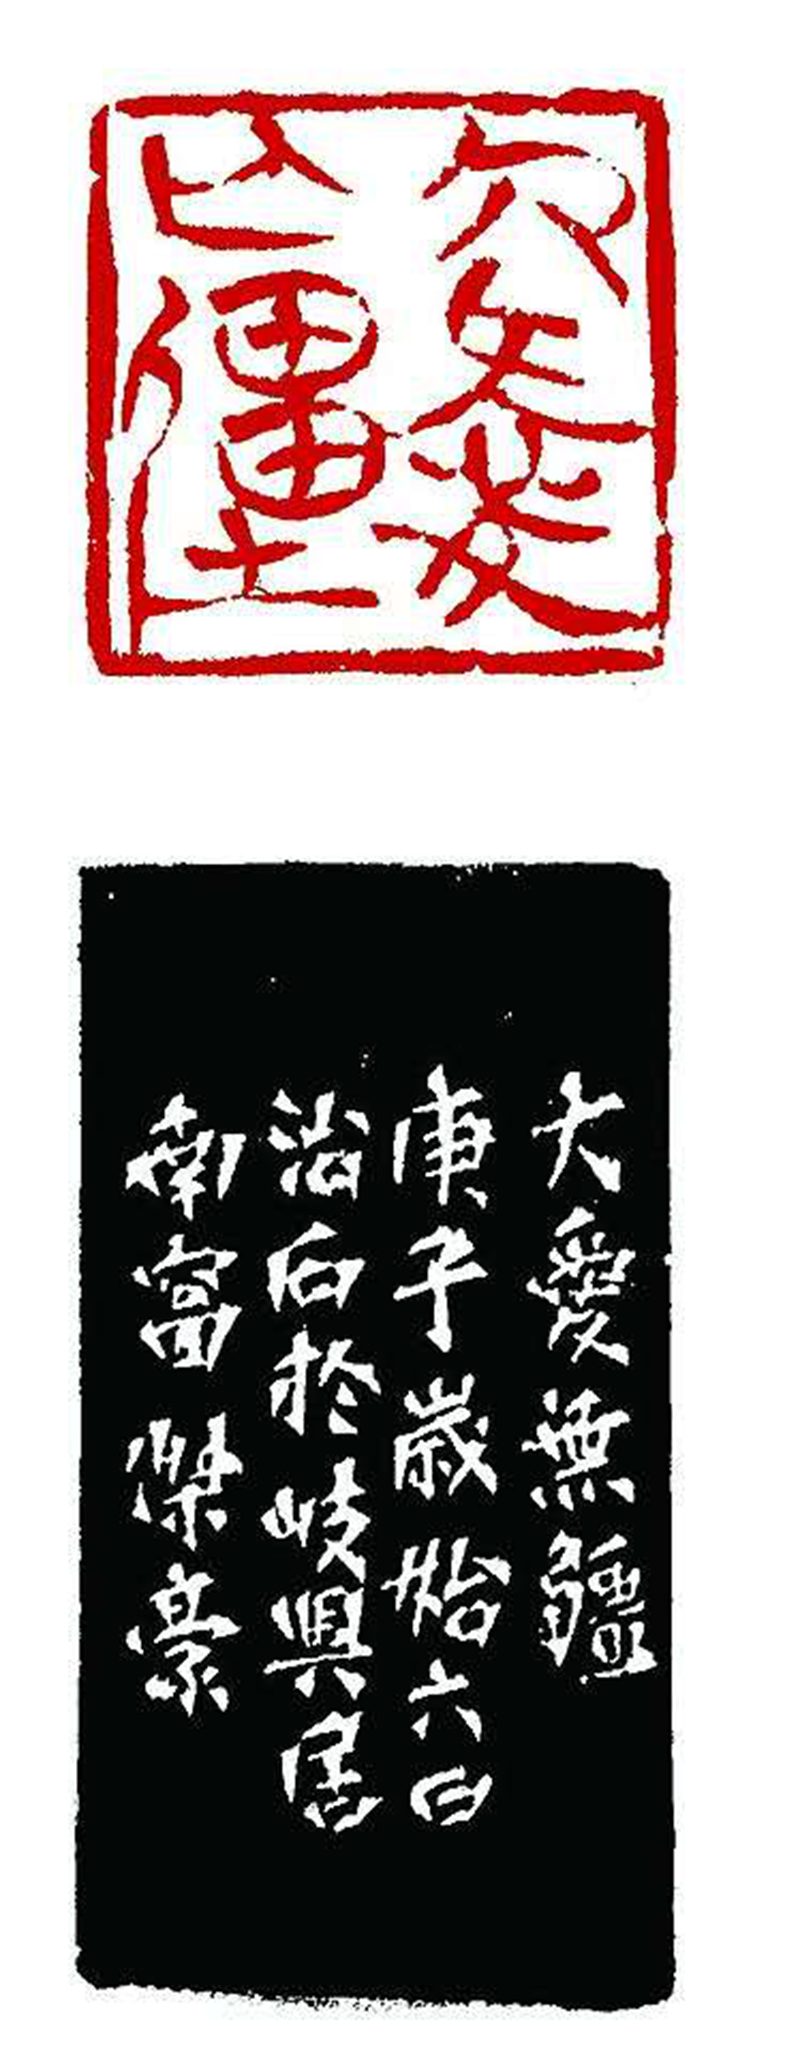 大愛亡疆
大愛無疆
庚子歲始六日
治石於岐興居
南窗 傑豪